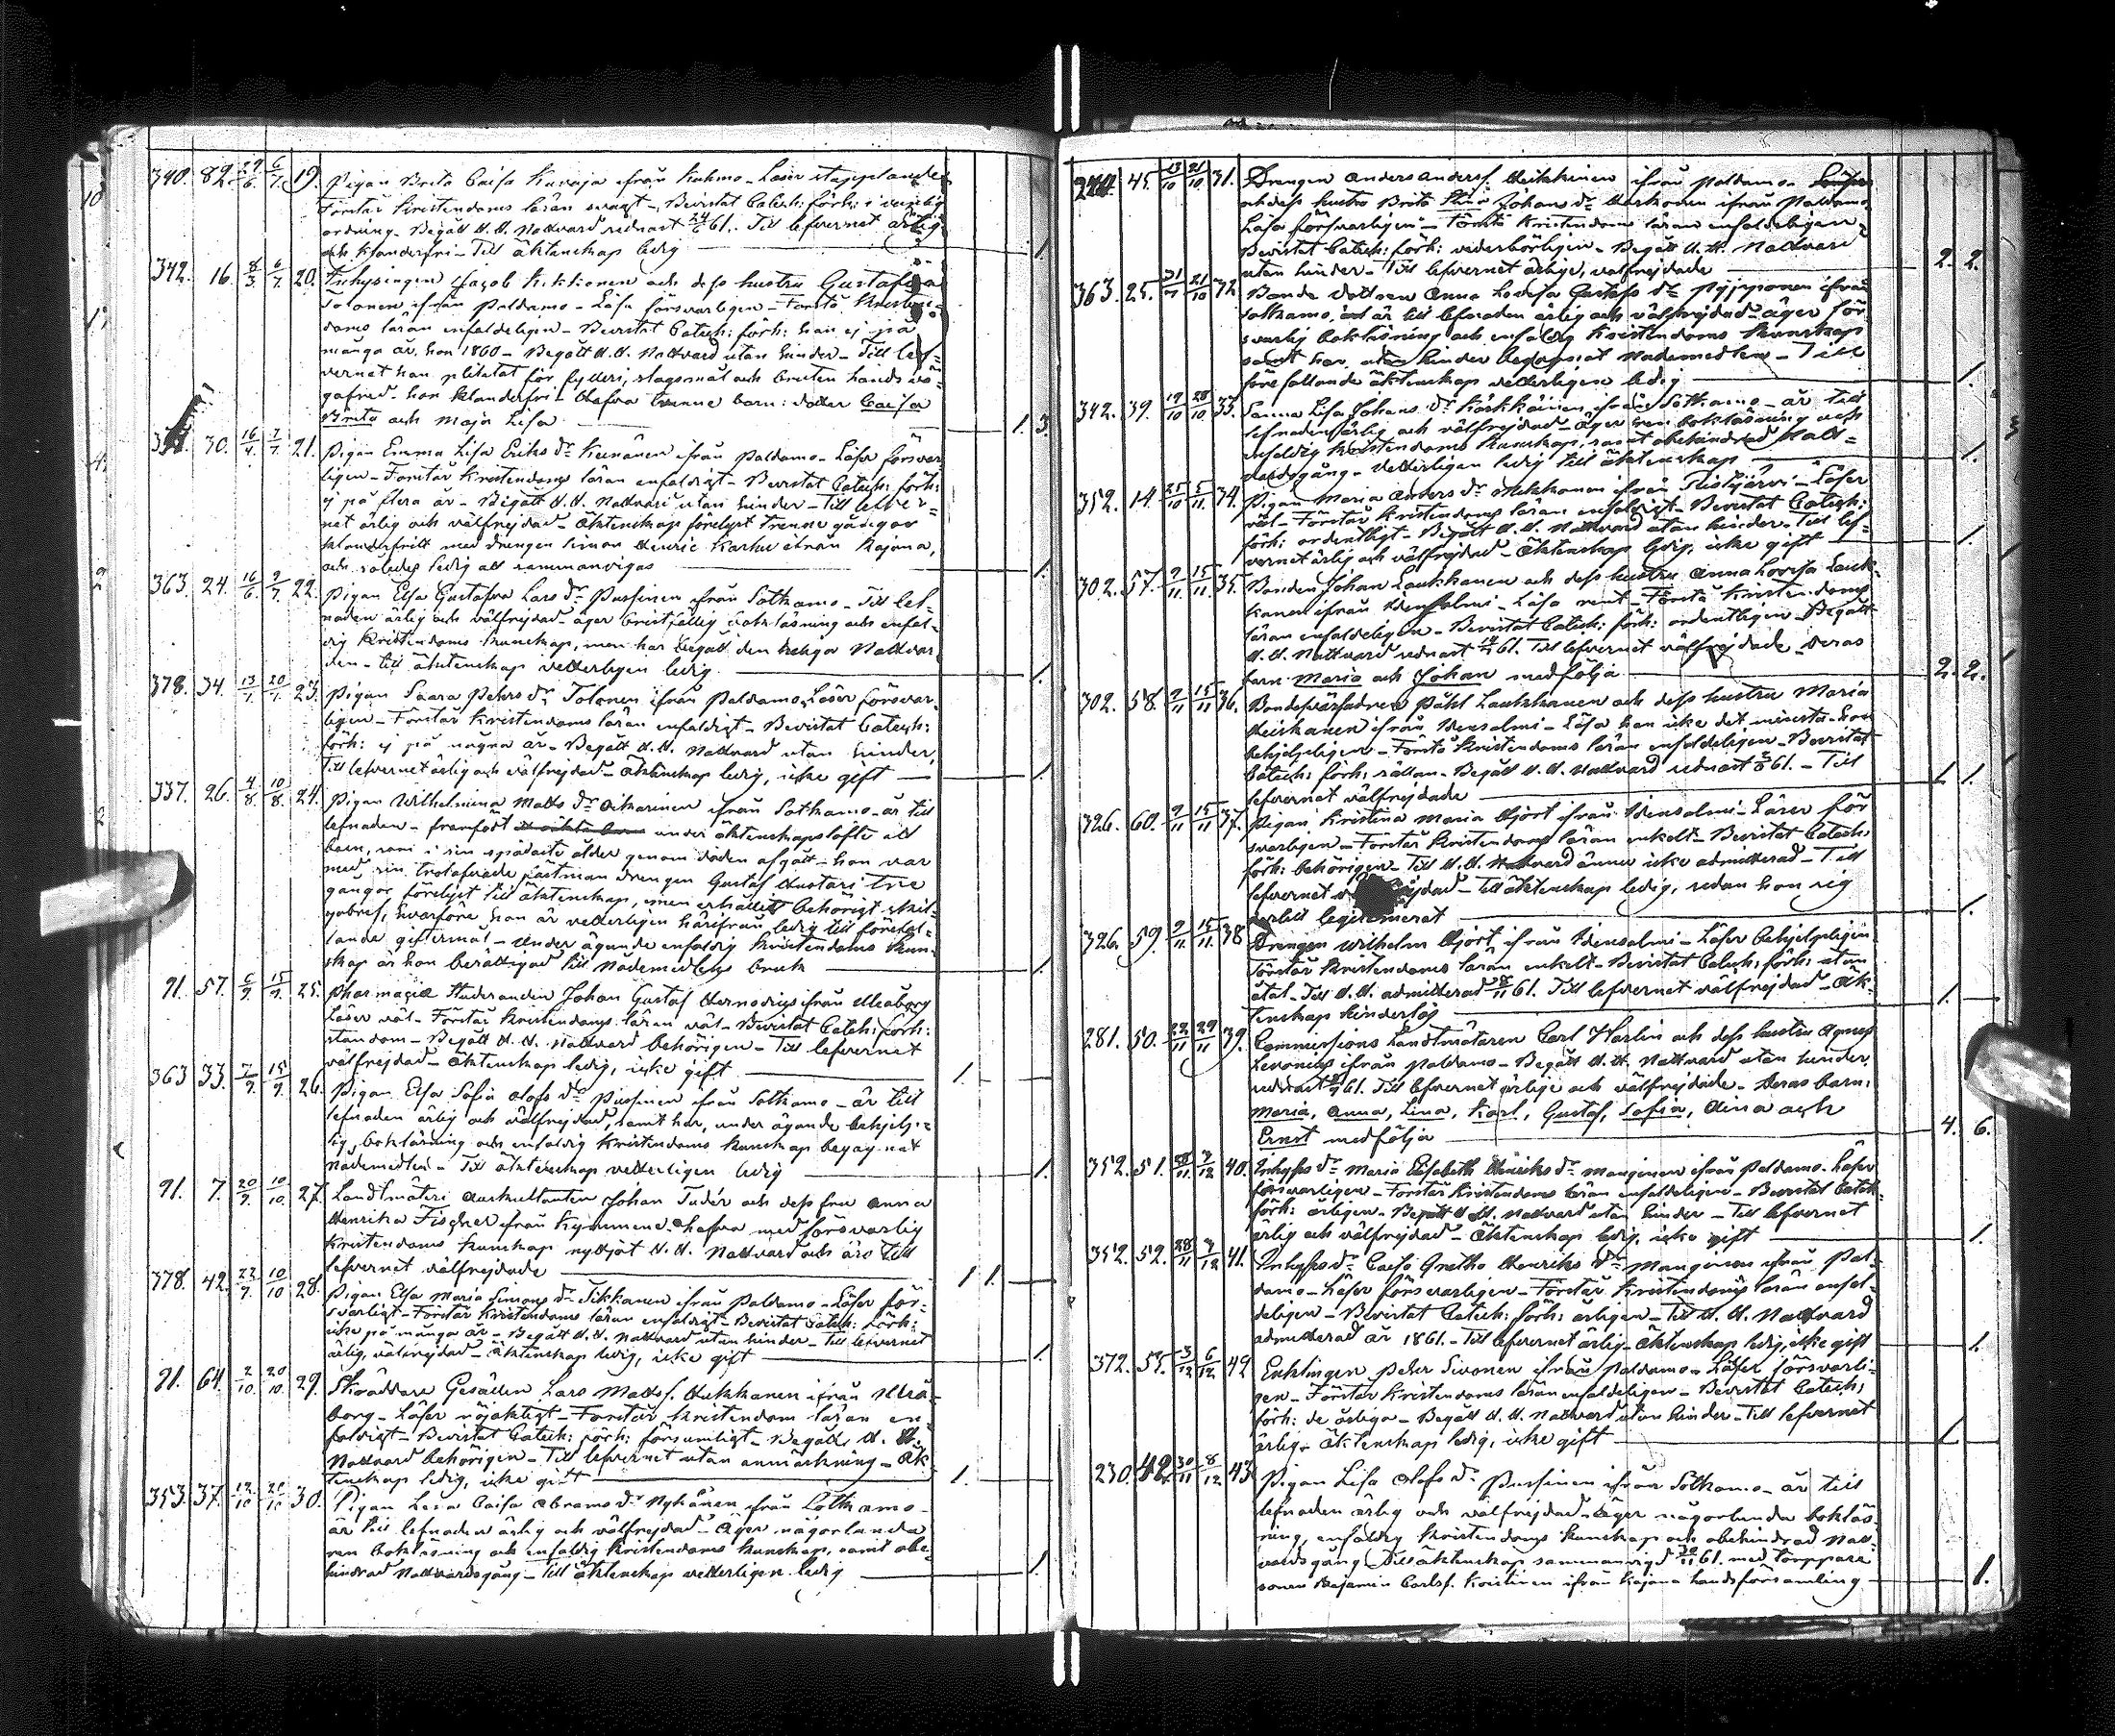 340. 82. 29/6. 6/7. 19. Pigan Brita Caisa Kuvaja ifrån Kuhmo. Läser stapplande
Förstår Kristendoms läran svagt. Bevistat Catech: förh: i vanlig
ordning. Begått H. H. Nattvard sednast 24/6 61. Till lefvernet ärlig
och klanderfri. Till äktenskap ledig 1.
342. 16. 8/3. 6/7. 20. Inhysingen Jacob Kikkonen och dess hustru Gustafva
Tolonen ifrån Paldamo. Läsa försvarligen. Förstå Kristen-
doms läran enfaldeligen. Bevistat Catech: förh: han ej på
många år, hon 1860. Begått H. H. Nattvard utan hinder. Till lef-
vernet han pliktat för fylleri, slagsmål och bruten hands
hon klanderfri. Hafva tvenne barn: dotter Caisa
Brita och Maja Lisa 1. 3.
30. 16/4. 7/7. 21. Pigan Emma Lisa Eriks dr Keinänen ifrån Paldamo. Läser försvar-
ligen. Förstår Kristendoms läran enfaldigt. Bevistat Catech: förh:
ej på flera år. Begått H. H. Nattvard utan hinder. Till lefver-
net ärlig och välfrejdad. Äktenskap förelyst trenne gångor
klanderfritt med drengen Simon Henric Karhu ifrån Kajana,
och således ledig att sammanvigas 1.
363. 24. 16/6. 9/7. 22. Pigan Elsa Gustafva Lars dr Pussinen ifrån Sotkamo. Till lef-
naden ärlig och välfrejdad. äger bristfällig boкläsning och enfal-
dig Kristendoms kunskap, men har begått den heliga Nattvar-
den. till äktenskap vetterligen ledig 1.
378. 34. 13/7. 20/7. 23. Pigan Saara Peters dr Tolonen ifrån Paldamo. Läser försvar-
ligen. Förstår Kristendoms läran enfaldigt. Bevistat Catech:
förh: ej på några år. Begått H. H. Nattvard utan hinder,
Till lefvernet ärlig och välfrejdad. Äktenskap ledig, icke gift 1.
337. 26. 4/8. 10/8. 24. Pigan Wilhelmina Matts dr Aikarinen ifrån Sotkamo. är till
lefnaden. framfödt under äktenskapslöfte ett
barn, som i sin spädaste ålder genom döden afgått. hon var
med sin trolofvade fästman drengen Gustaf Mustari tre
gångor förelyst till äktenskap, men erhållit behörigt skil-
gobref, hvarföre hon är vetterligen härifrån ledig till föreläl-
lande giftermål. Under ägande enfaldig Kristendoms kun-
skap är hon berättigad till Nådemedlens bruk 1.
91. 57. 6/9. 15/9. 25. Pharmaciæ Studeranden Johan Gustaf ifrån Uleåborg
Läser väl. Förstår Kristendoms läran väl. Bevistat Catech: förh:
stundom. Begått H. H. Nattvard behörigen. Till lefvernet
välfrejdad. Äktenskap ledig, icke gift 1.
363 33. 7/9. 15/9. 26. Pigan Elsa Sofia Olofs dr Pussinen ifrån Sotkamo. är till
lefnaden ärlig och välfrejdad, samt har, under ägande behjelp-
lig boкläsning och enfaldig Kristendoms kunskap begagnat
nådemedlen. Till äktenskap vetterligen ledig 1.
91. 7. 20/9. 10/10. 27. Landtmäteri Auskultanten Johan Tudér och dess fru Anna
Henrika Fischer ifrån Kymmene. Hafva med försvarlig
Kristendoms kunskap nyttjat H. H. Nattvard och äro till
lefvernet välfrejdade 1. 1.
378. 42. 22/9. 10/10 28. Pigan Elsa Maria Simons dr Tikkanen ifrån Paldamo. Läser för-
svarligt. Förstår Kristendoms läran enfaldigt. Bevistat Catech: förh:
icke på många år. Begått H. H. Nattvard utan hinder. Till lefvernet
ärlig, välfrejdad. Äktenskap ledig, icke gift 1.
91. 64. 2/10. 20/10. 29. Skräddare Gesällen Lars Matts s. Hukkanen ifrån Uleå-
borg. Läser nöjaktigt. Förstår Kristendoms läran en-
faldigt. Bevistat Catech: förh: försumligt. Begått H. H.
Nattvard behörigen. Till lefvernet utan anmärkning. Äk-
tenskap ledig, icke gift 1.
353. 37. 30. Pigan Lena Caisa Abrams dr Nyhänen ifrån Sotkamo.
är till lefnaden ärlig och välfrejdad. Äger någorlunda
ren boкläsning och enfaldig Kristendoms kunskap, samt obe-
hindrad Nattvardsgång. Till äktenskap vetterligen ledig 1.
45. 13/10 21/10 31. Drengen Anders Anders s. Heikkinen ifrån Paldamo.
och dess hustru Brita Johans dr ifrån Paldamo.
Läsa försvarligen. Förstå Kristendoms läran enfaldeligen.
Bevistat Catech: förh: vederbörligen. Begått H. H. Nattvard
utan hinder. Till lefvernet ärlige, välfrejdade 2. 2.
363. 25. 21/10 32 Bonde dottren Anna Lovisa Gustafs dr Pyyponen ifrån
Sotkamo, är till lefnaden ärlig och välfrejdad. äger för-
svarlig boкläsning och enfaldig Kristendoms kunskap
samt har utan hinder begagnat Nådemedlen. Till
förefallande äktenskap vetterligen ledig 1.
342. 39. 19/10 28/10 33. Sanna Lisa Johans dr Kärkkäinen ifrån Sotkamo. är till
lefnaden ärlig och välfrejdad. Äger ren boкläsning och
enfaldig Kristendoms kunskap, samt obehindrad Natt-
vardsgång. Vetterligen ledig till äktenskap 1.
352. 14. 25/10 5/11 34. Pigan Maria Anders dr Mikkonen ifrån Ristijärvi. Läser
väl. Förstår Kristendoms läran enfaldigt. Bevistat Catech:
förh: ordentligt. Begått H. H. Nattvard utan hinder. Till lef-
vernet ärlig och välfrejdad. Äktenskap ledig, icke gift 1.
302. 57. 2/11. 15/11. 35. Bonden Johan Laukkanen och dess hustru Anna Lovisa Lauk-
kanen ifrån Idensalmi. Läsa rent. Förstå Kristendoms
läran enfaldeligen. Bevistat Catech: förh: ordentligen. Begått
H. H. Nattvard sednast 61. Till lefvernet välfrejdade. Deras
barn Maria och Johan medfölja 2. 2.
302. 58. 2/11 15/11 36. Bondesvärfadren Påhl Laukkanen och dess hustru Maria
Heiskanen ifrån Idensalmi. Läsa han icke det minsta. hon
behjelpeligen. Förstå Kristendoms läran enfaldeligen. Bevistat
Catech: förh: sällan. Begått H. H. Nattvard sednast 61. Till
lefvernet välfrejdade 1. 1.
326. 60. 2/11. 15/11 37. Pigan Kristina Maria Hjort ifrån Idensalmi. Läser för-
svarligen. Förstår Kristendoms läran enkelt. Bevistat Catech:
förh: behörigen. Till H. H. Nattvard ännu icke admitterad. Till
lefvernet Till äktenskap ledig, sedan hon sig
legitimerat 1.
326. 59. 2/11. 15/11. 38 Drengen Wilhelm Hjort ifrån Idensalmi. Läser behjelpligen
Förstår Kristendoms läran enkelt. Bevistat Catech: förh: utan
åtal. Till H. H. admitterad 61. Till lefvernet välfrejdad. Äk-
tenskap hinderlös 1.
281. 50. 22/11 29/11 39. Commissions Landtmätaren Carl Harlin och dess hustru Agnes
Levonius ifrån Paldamo. Begått H. H. Nattvard utan hinder,
sednast 61. Till lefvernet ärlige och välfrejdade. Deras barn:
Maria, Anna, Lina, Karl, Gustaf, Sofia, Alina och
Ernst medfölja 4. 6.
352. 51. 28/11 3/12 40. Inhyses dr Maria Elisabeth Henriks dr Manninen ifrån Paldamo. Läser
försvarligen. Förstår Kristendoms läran enfaldeligen. Bevistat Catech.
förh: årligen. Begått H. H. Nattvard utan hinder. Till lefvernet
ärlig och välfrejdad. Äktenskap ledig, icke gift 1.
352. 52. 28/11 3/12 41. Inhyses dr Caisa Gretha Henriks dr Manninen ifrån Pal-
damo. Läser försvarligen. Förstår Kristendoms läran enfal-
deligen. Bevistat Catech: förh: årligen. Till H. H. Nattvard
admitterad år 1861. Till lefvernet ärlig. Äktenskap ledig, icke gift 1.
372. 3/12 6/12 42 Enklingen Peter Sivonen ifrån Paldamo. Läser försvarli-
gen. Förstår Kristendoms läran enfaldeligen. Bevistat Catech:
förh: de årliga. Begått H. H. Nattvard utan hinder. Till lefvernet
ärlig. Äktenskap ledig, icke gift 1.
230. 42. 30/11 8/12 43 Pigan Lisa Olofs dr Pussinen ifrån Sotkamo. är till
lefnaden ärlig och välfrejdad. Äger någorlunda boкläs-
ning, enfaldig Kristendoms kunskap och obehindrad Natt-
vardsgång. Till äktenskap sammanvigd 61 med torppare
sonen Benjamin Carls s. Kortinen ifrån Kajana landsförsamling 1.